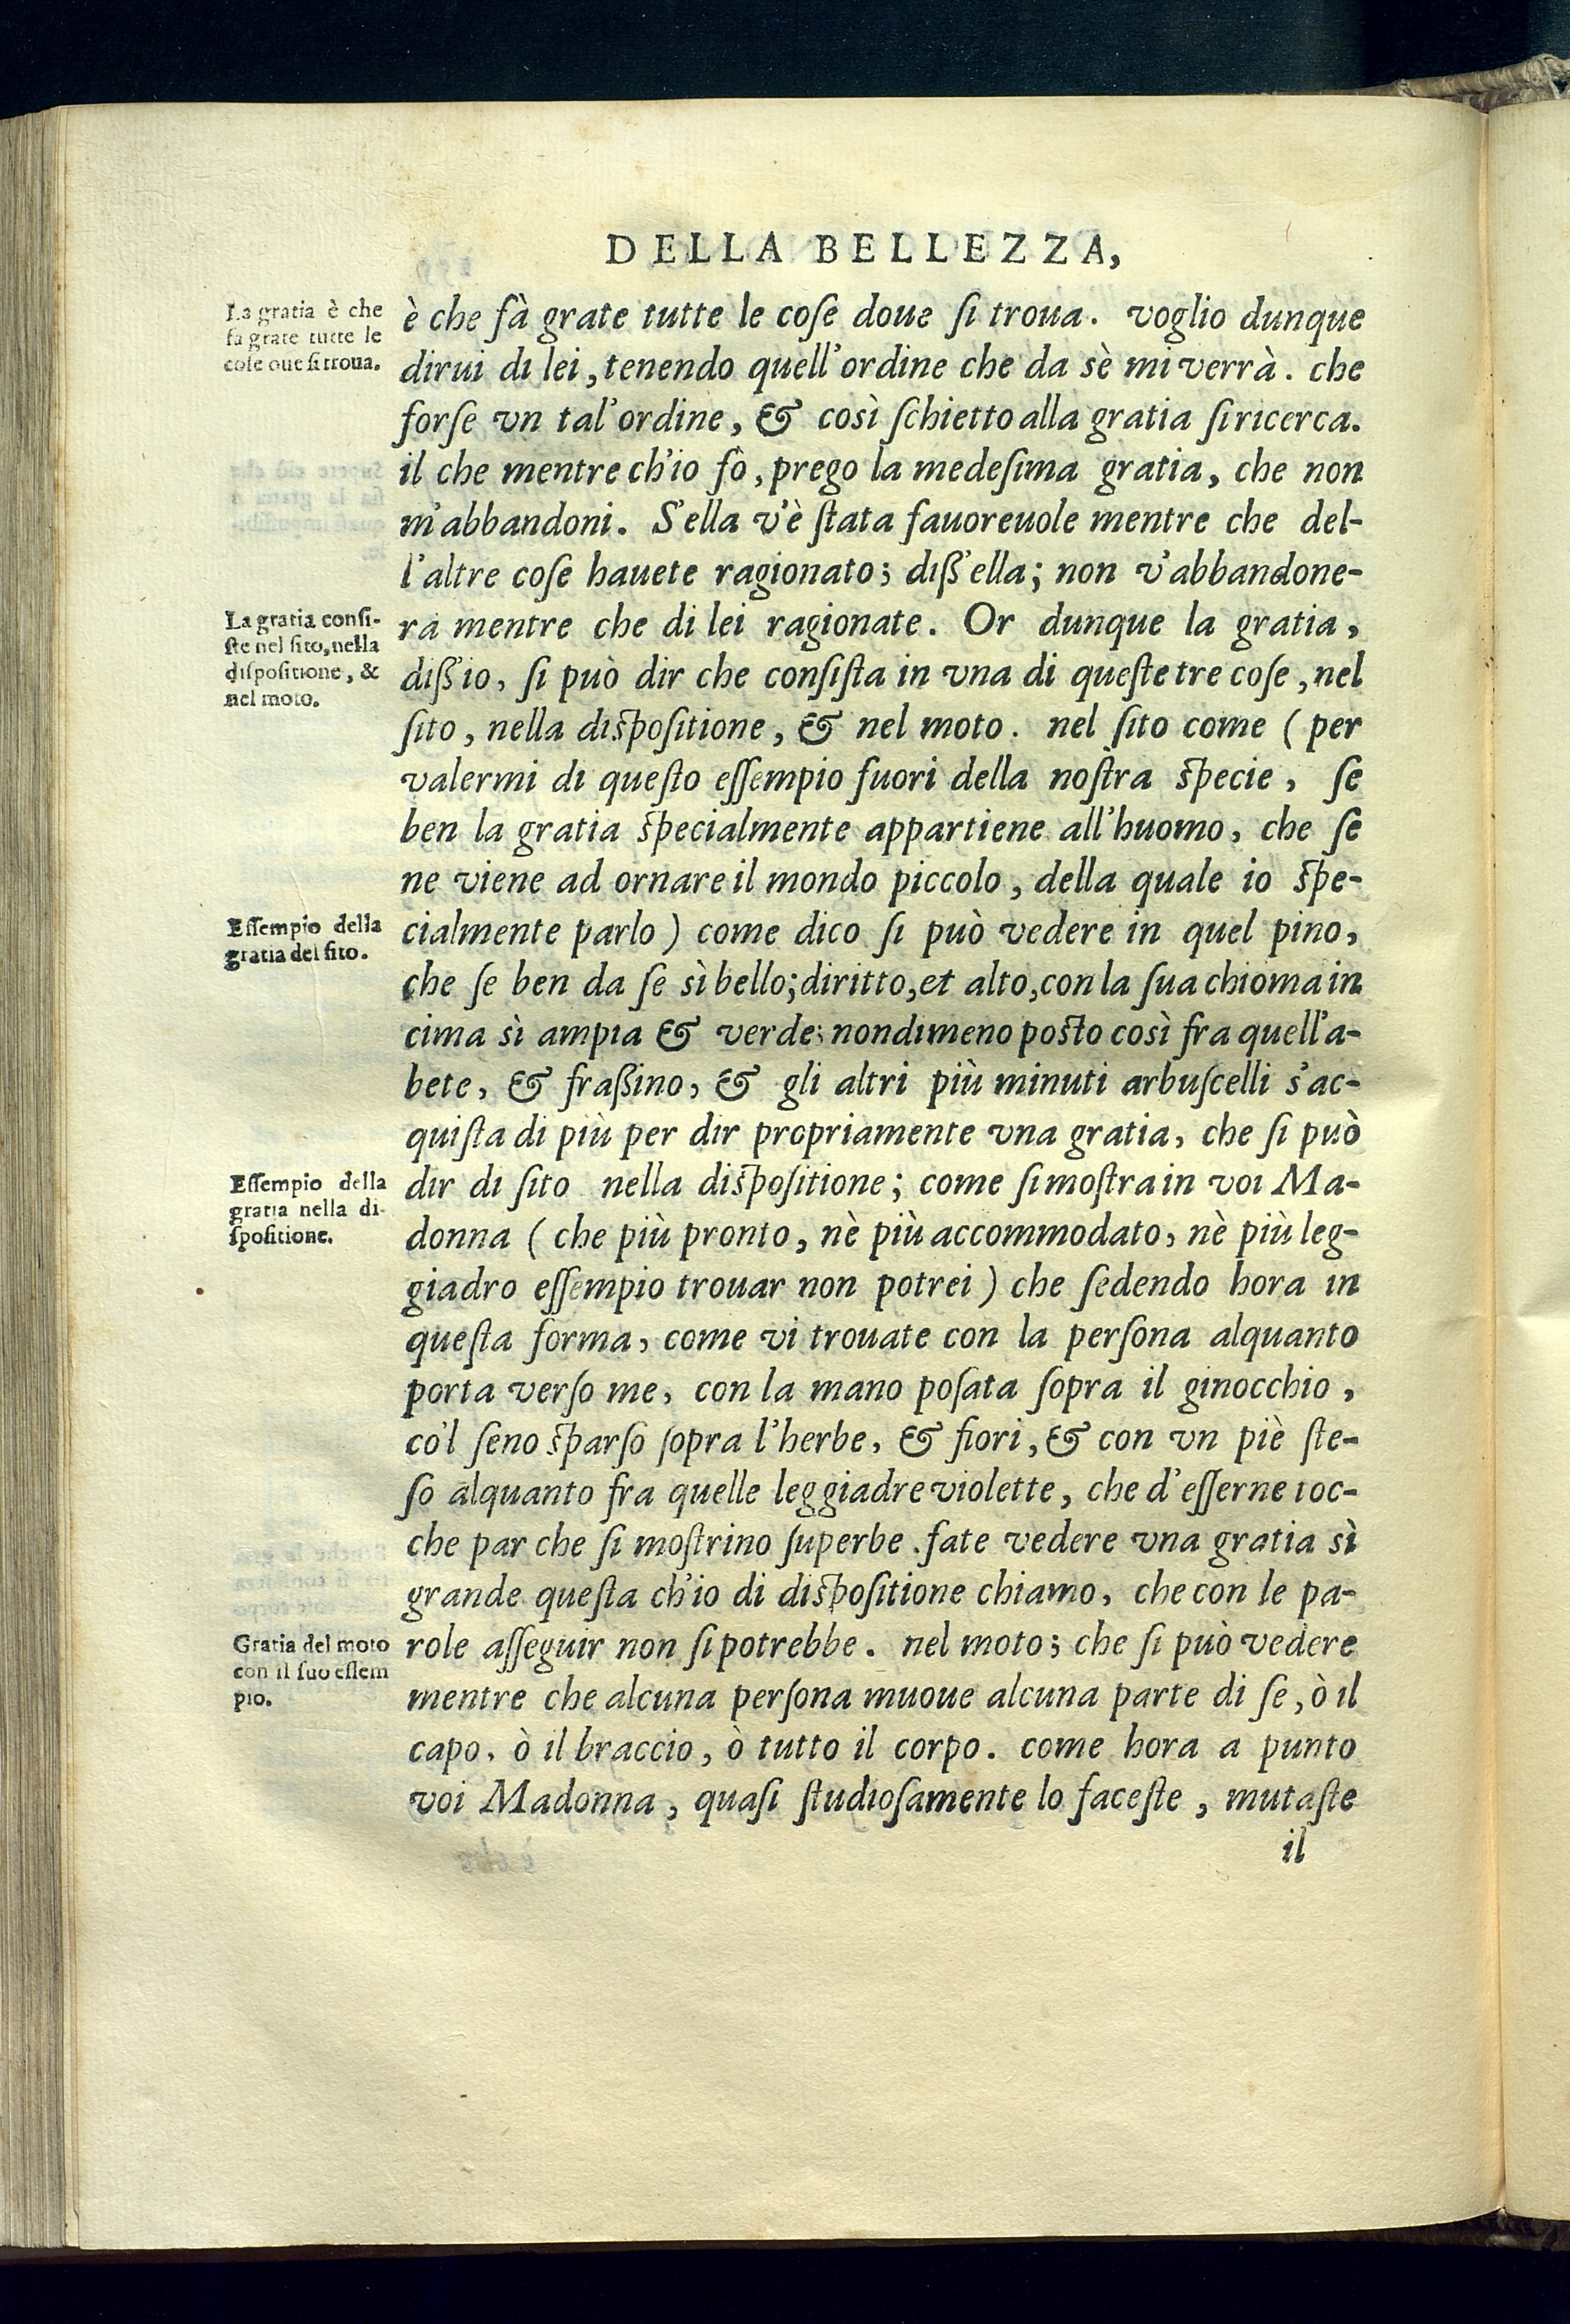 DELLA BELLEZZA,
La gratia è che
fa grate tutte le
cose oue si troua.
è che fà grate tutte le cose doue si troua. voglio dunque
dirui di lei, tenendo quell'ordine che da sè mi verrà. che
forse vn tal'ordine, & così schietto alla gratia si ricerca.
il che mentre ch'io fò, prego la medesima gratia, che non
m'abbandoni. S'ella v'è stata fauoreuole mentre che del-
l'altre cose hauete ragionato; diss'ella; non v'abbandone-
La gratia consi-
ste nel sito, nella
dispositione, &
nel moto.
rà mentre che di lei ragionate. Or dunque la gratia,
diss'io, si può dir che consista in vna di queste tre cose, nel
sito, nella dispositione, & nel moto. nel sito come (per
valermi di questo essempio fuori della nostra specie, se
ben la gratia specialmente appartiene all'huomo, che se
ne viene ad ornare il mondo piccolo, della quale io spe-
Essempio della
gratia del sito.
cialmente parlo) come dico si può vedere in quel pino,
che se ben da se sì bello; diritto, et alto, con la sua chioma in
cima sì ampia & verde; nondimeno posto così fra quell'a-
bete, & frassino, & gli altri più minuti arbuscelli s'ac-
quista di più per dir propriamente vna gratia, che si può
Essempio della
gratia nella di-
spositione.
dir di sito nella dispositione; come si mostra in voi Ma-
donna (che più pronto, nè più accommodato, nè più leg-
giadro essempio trouar non potrei) che sedendo hora in
questa forma, come vi trouate con la persona alquanto
porta verso me, con la mano posata sopra il ginocchio,
co'l seno sparso sopra l'herbe, & fiori, & con vn piè ste-
so alquanto fra quelle leggiadre violette, che d'esserne toc-
che par che si mostrino superbe. fate vedere vna gratia sì
grande questa ch'io di dispositione chiamo, che con le pa-
Gratia del moto
con il suo essem
pio.
role asseguir non si potrebbe. nel moto; che si può vedere
mentre che alcuna persona muoue alcuna parte di se, ò il
capo, ò il braccio, ò tutto il corpo. come hora a punto
voi Madonna, quasi studiosamente lo faceste, mutaste
il